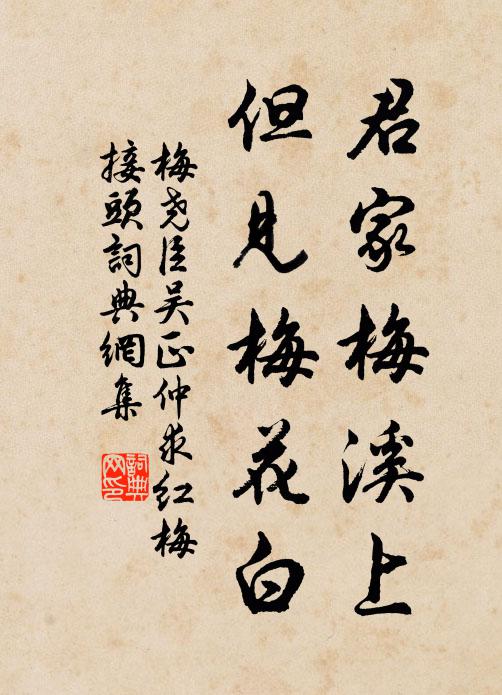 君家梅溪上
但見梅花白
梅尧臣吴正仲求红梅
接頭詞典網集
詞典
网印